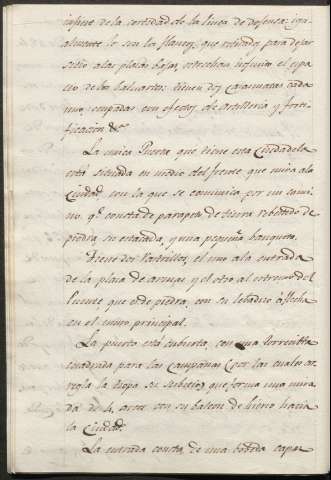 infiere de la cortedad de la linea de defensa: igu-
almente lo son los flancos, que retirados para dejar
sitio a las plazas bajas, estrechan disfruta el espa
cio de los baluartes: tienen dos casamatas cada
uno, ocupadas con efectos de artilleria y forti-
ficacion &a
La unica Puerta que tiene esta Ciudadela
está situada en medio del frente que mira ala
Ciudad, con la que se comunica por un cami-
no, qe. consta de parapeto de tierra rebestido de
piedra, su estacada, y una pequeña banqueta.
Tiene dos Rastrillos, el uno ala entrada
de la plaza de armas, y el otro al extremo del
Puente que es de piedra, con su lebadizo a flecha
en el muro principal.
La puerta está cubierta, con una torrecilla
quadrada para las campanas (por las cuales ar-
regla la tropa su servicio) que forma una mira
da de 4 arcos con su balcon de hierro hacia
la Ciudad.
La entrada consta de una bobeda capaz